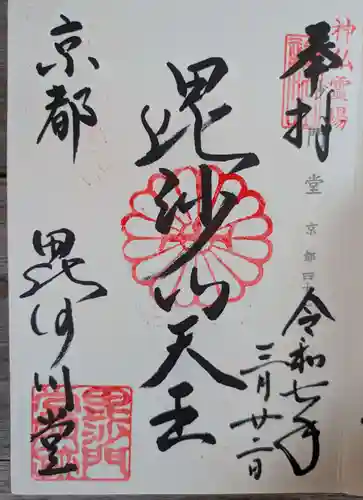 神仏霊場
奉拝
門
堂
京都四
令和七年
三月廿二日
毘沙門天王
京都
毘沙門堂